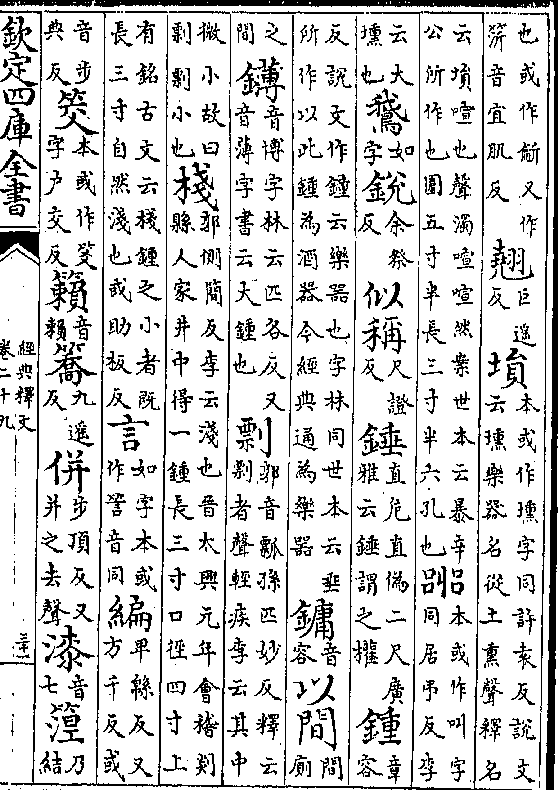 也或作䶵又作箎音宜肌反翹巨遥反塤本或作壎字同許袁反說文云壎樂器名從土熏聲釋名
云塤喧也聲濁喧喧然案世本云暴辛公所作也圍五寸半長三寸半六孔也㗊本或作叫字同居弔反李
云大壎也鵞如字銳余祭反似稱尺證反錘直危直偽二尺廣雅云錘謂之權鍾章容
反說文作鍾云樂器也字林同世本云垂所作以此鍾為酒器今經典通為樂器鏞音容以間間廁
之間鎛音博字林云匹各反又音薄字書云大鍾也剽郭音瓢孫匹妙反釋云剽者聲輕疾李云其中
微小故曰剽剽小也棧郭側簡反李云淺也晉太興元年會稽剡縣人家井中得一鍾長三寸口徑四寸上
有銘古文云棧鍾之小者既長三寸自然淺也或助板反言如字本或作䇾音同編卑緜反又方千反或
音步典反筊本或作茭字户交反籟音賴簥九遥反併步頂反又并之去聲漆音七篞乃結
欽定四庫全書
經典釋文
卷二十九
三十